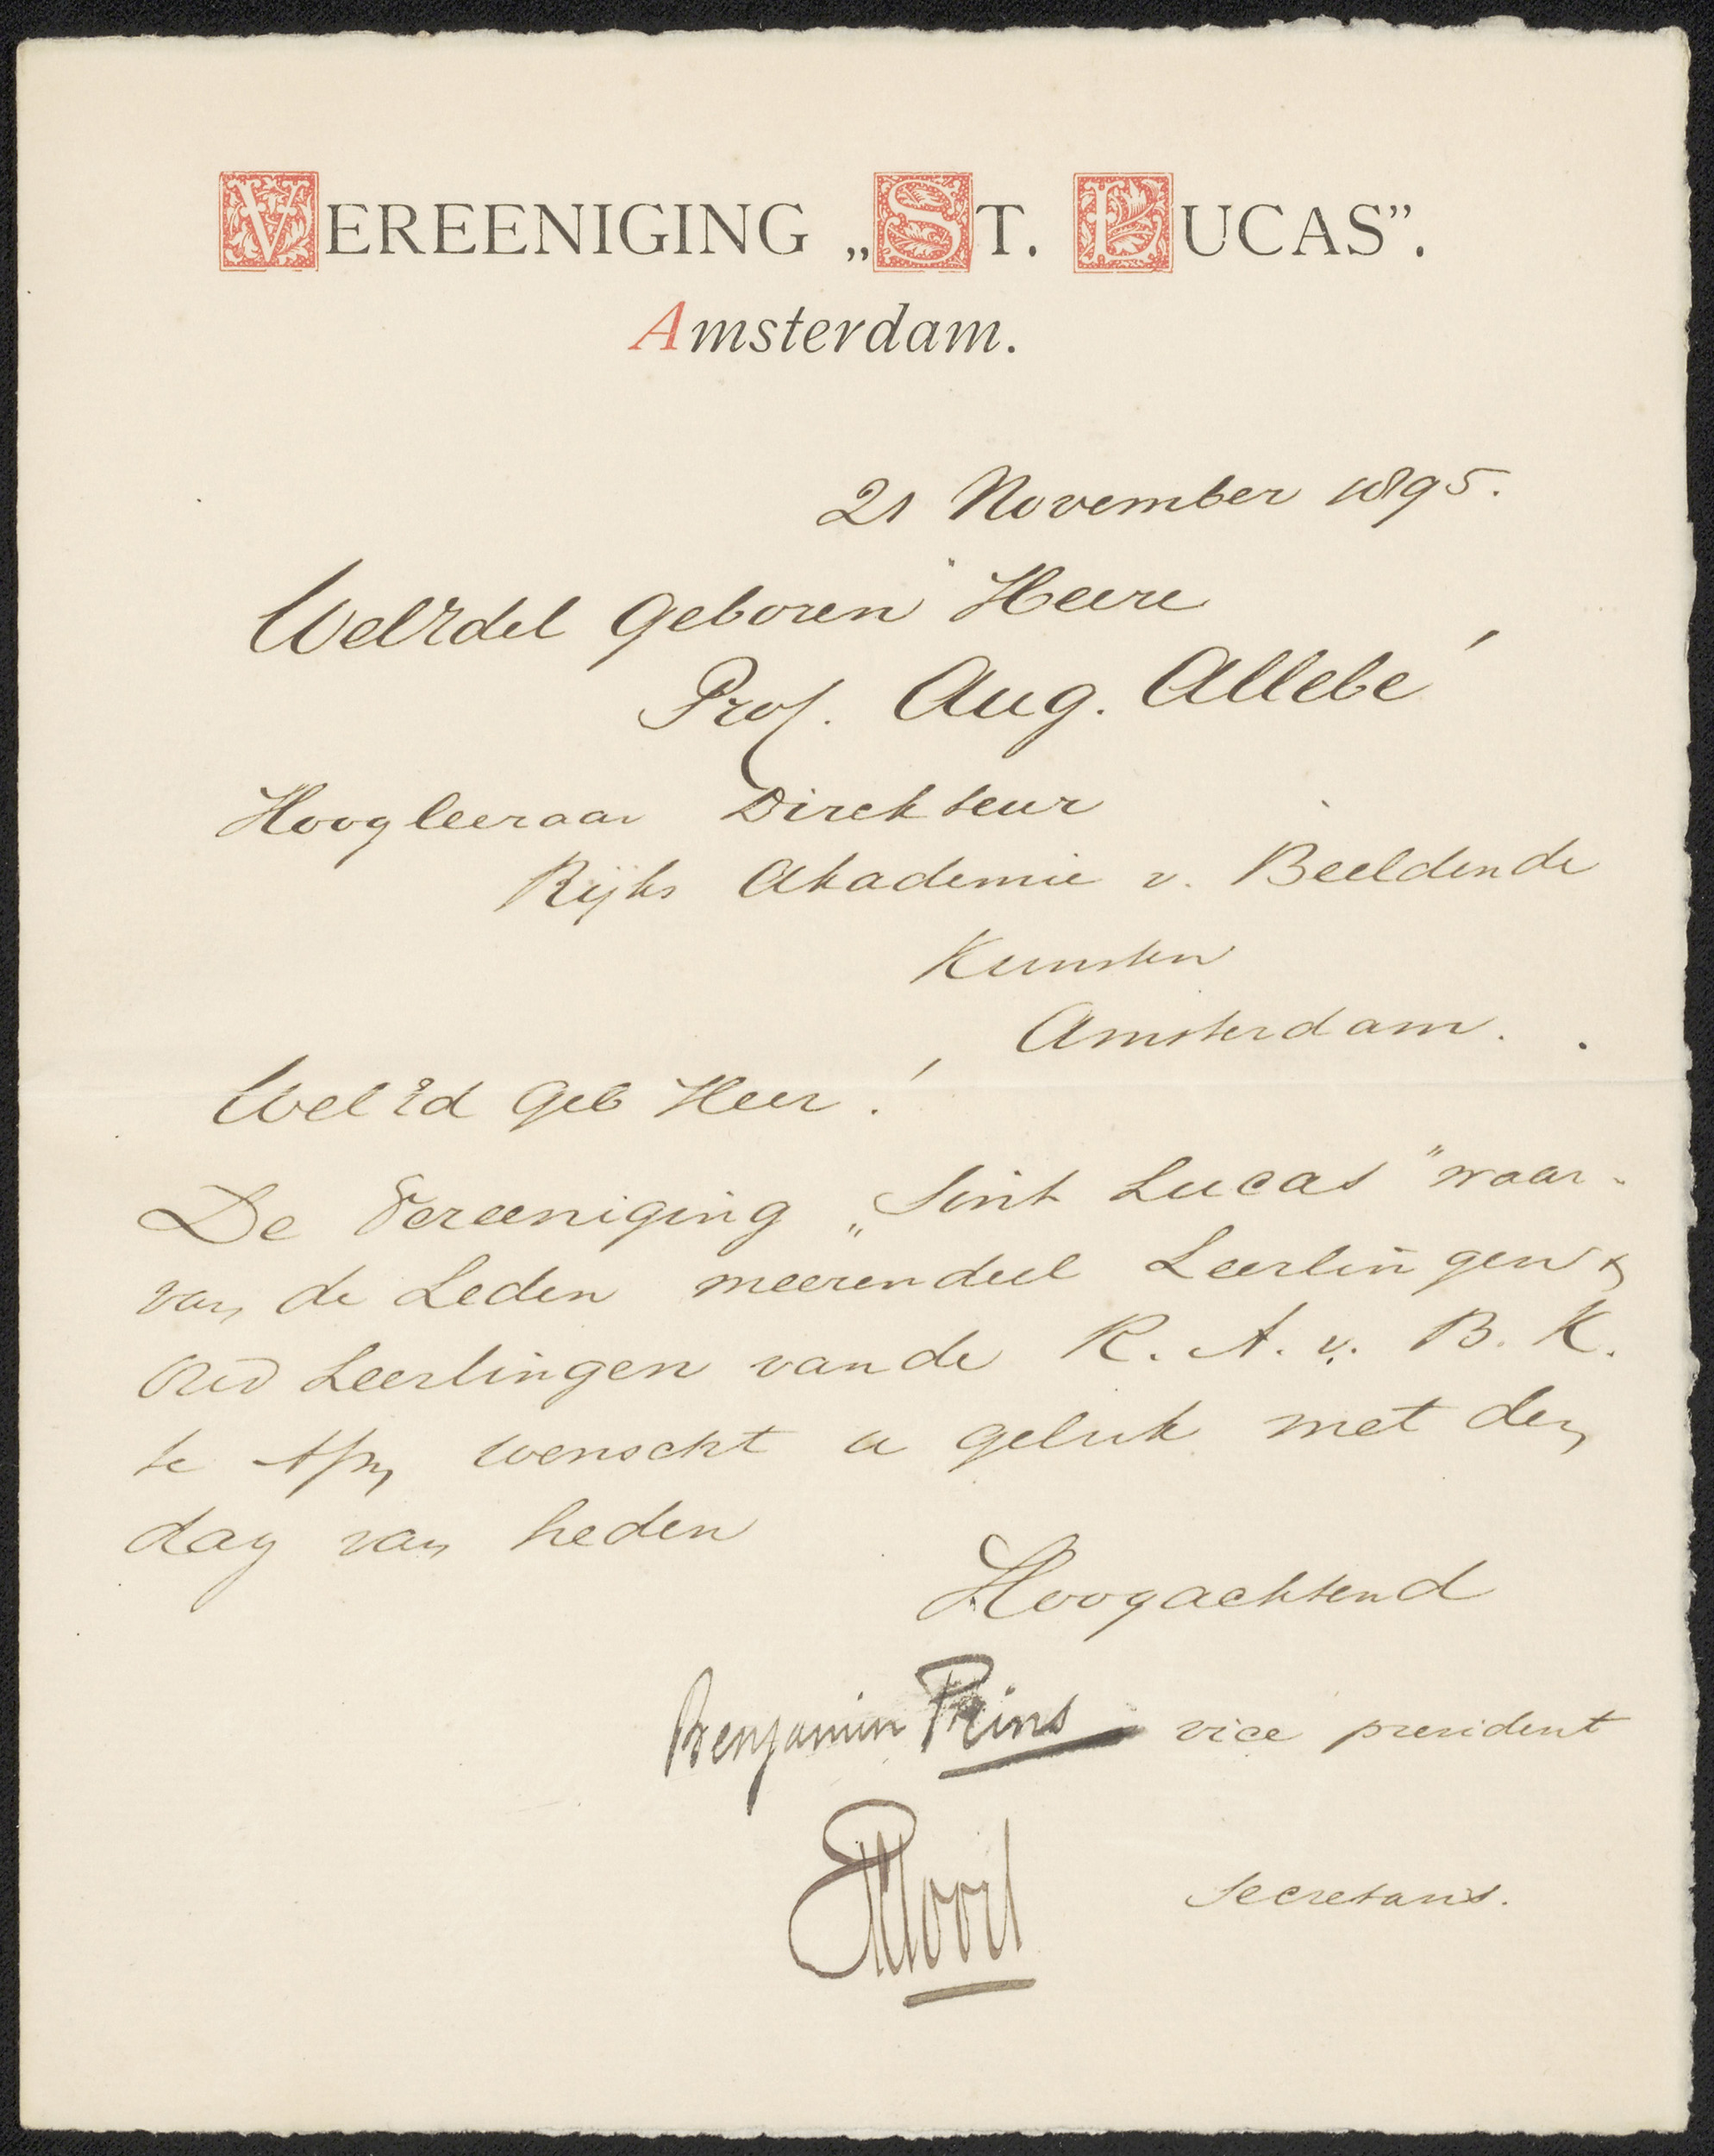 VEREENIGING „ST. LUCAS”.
Amsterdam.
21 November 1895.
WelEdel Geboren Heere
Prof. Aug. Allebé
Hoogleeraar Direkteur
Rijks Akademie v. Beeldende
Kunsten
Amsterdam.
WelEd Geb Heer!
De Vereeniging „Sint Lucas” waar-
van de Leden meerendeel Leerlingen &
Oud Leerlingen van de R. A. v. B. K.
te wenscht u geluk met den
dag van heden
Hoogachtend
Benjamin Prins vice president
Secretaris.